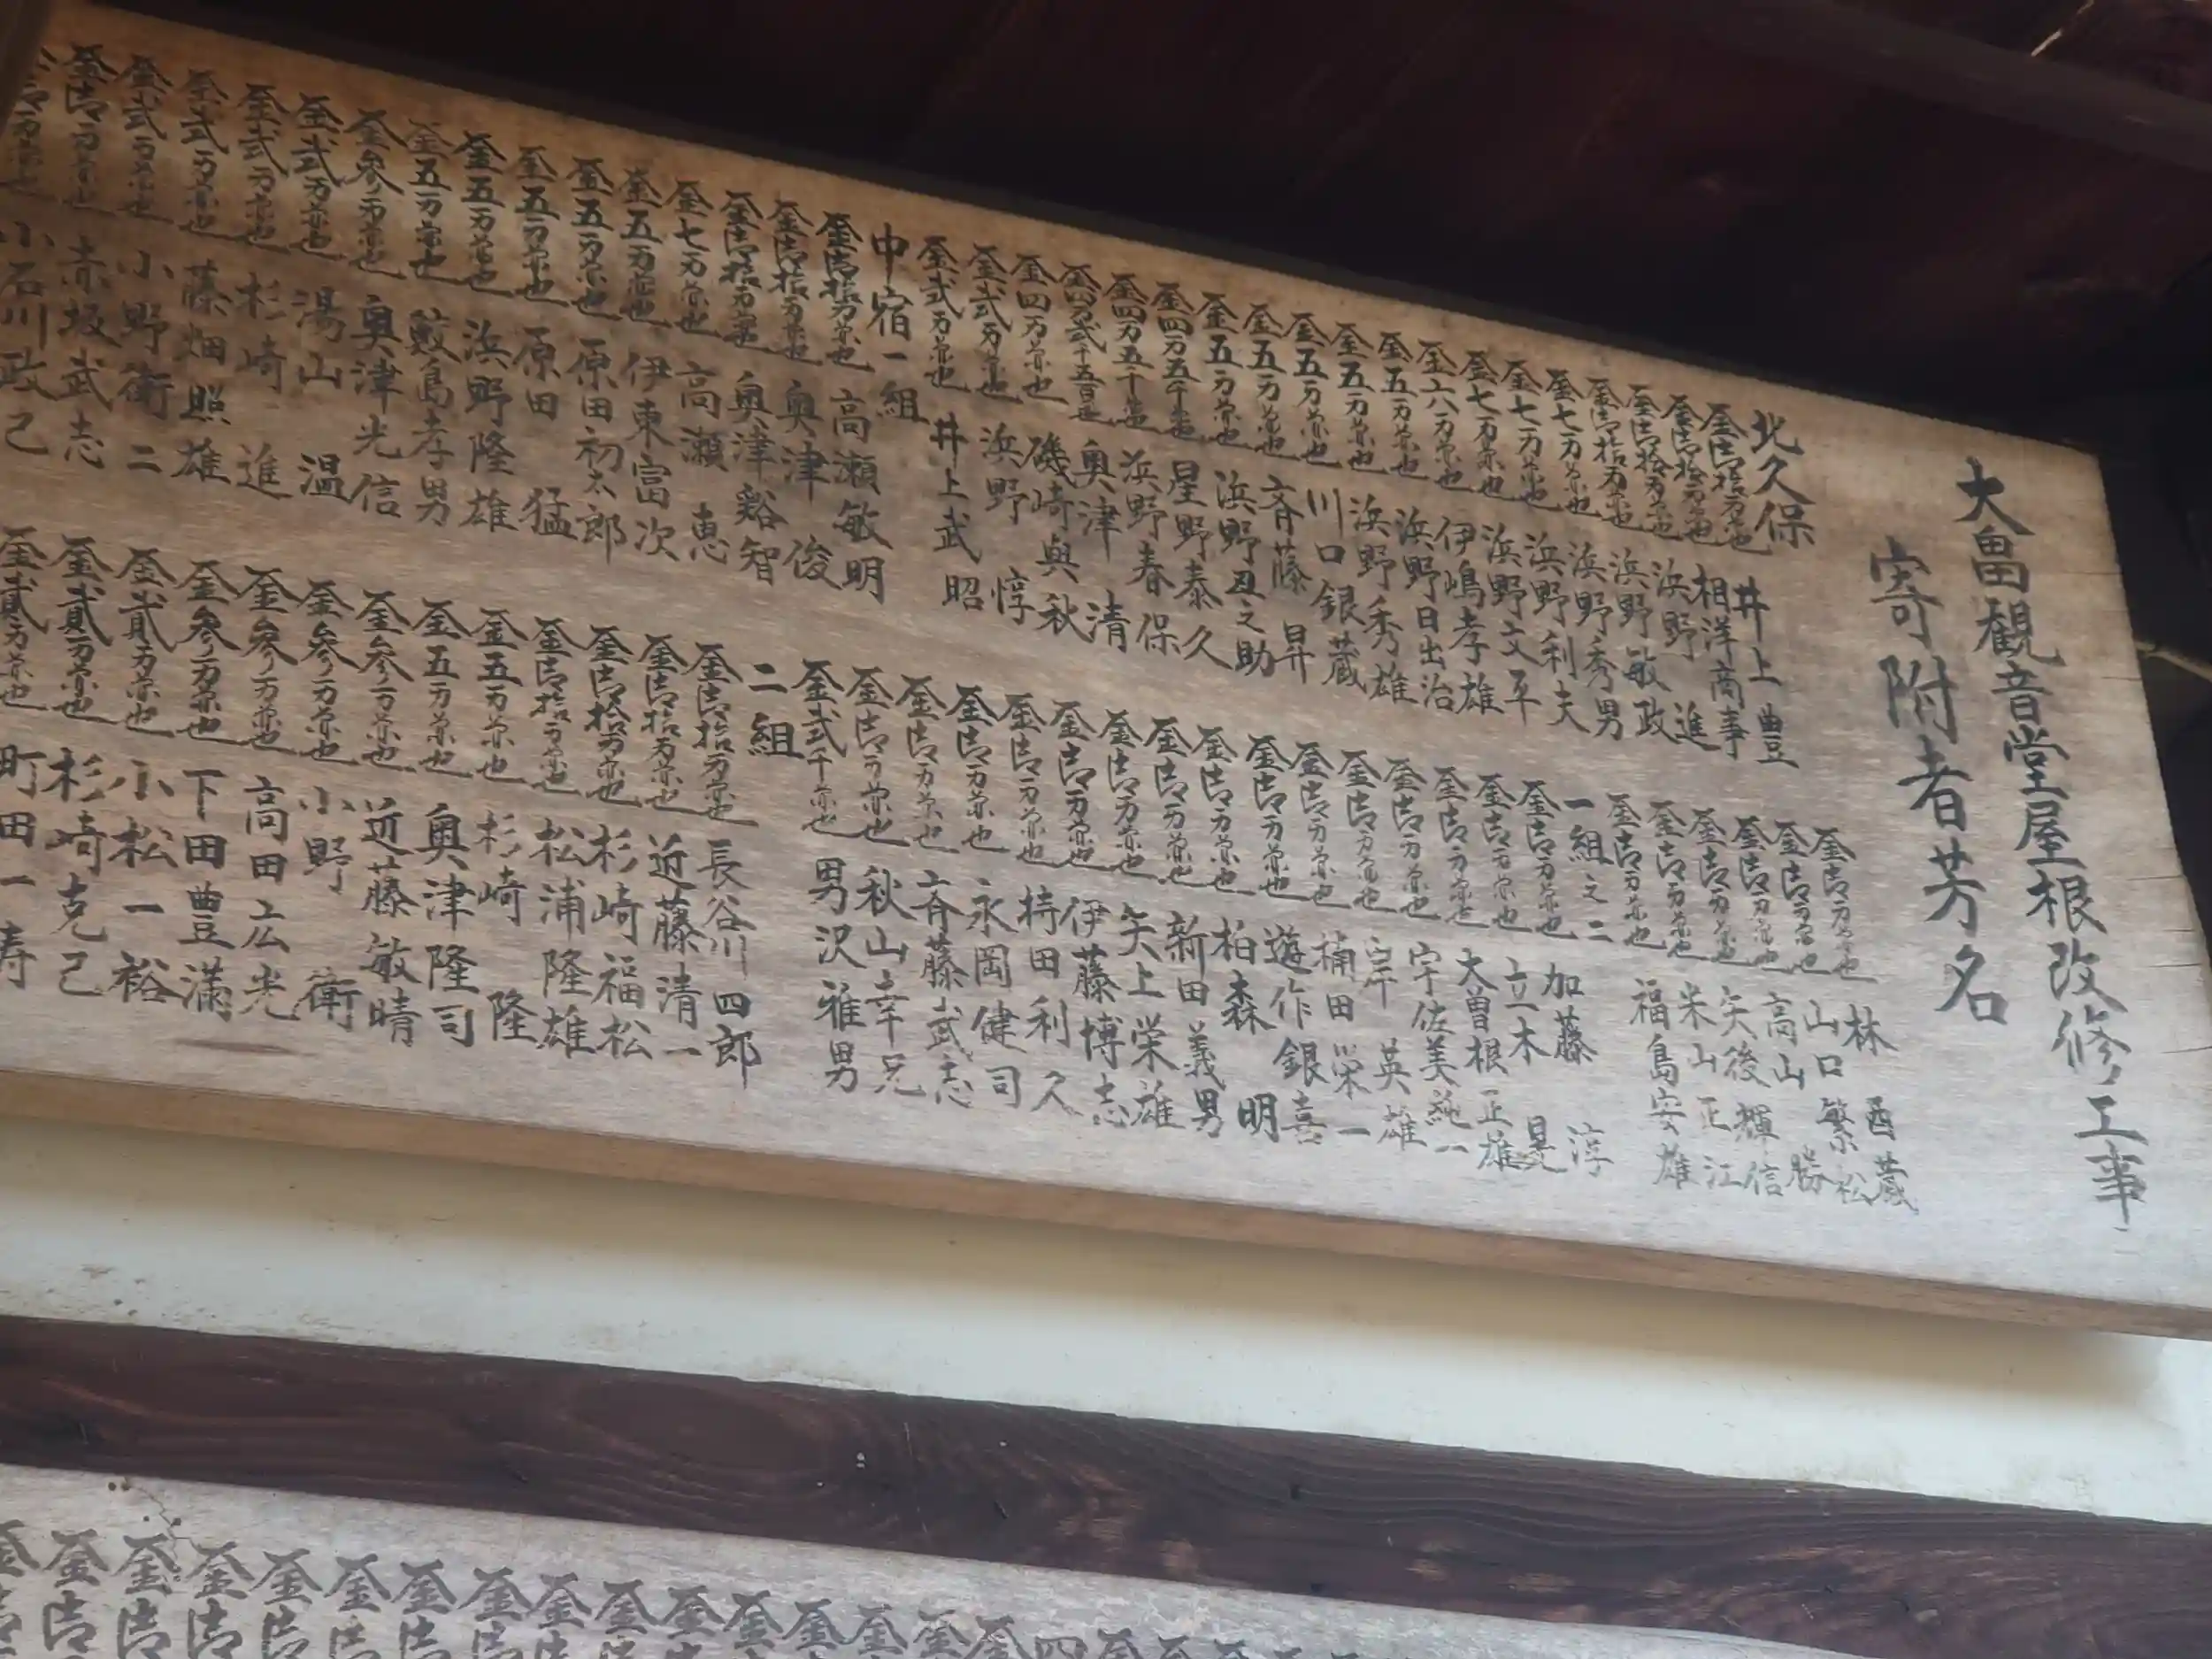 大畠観音堂屋根改修工事
寄附者芳名
北久保
金壱拾万円也 井上豊
金壱拾万円也 相洋商事
金壱拾万円也 浜野進
金壱拾万円也 浜野敏政
金七万円也 浜野秀男
金七万円也 浜野利夫
金七万円也 浜野文平
金六万円也 伊嶋孝雄
金五万円也 浜野日出治
金五万円也 浜野秀雄
金五万円也 川口銀蔵
金五万円也 斉藤昇
金五万円也 浜野丑之助
金四万五千円 星野泰久
金四万五千円 浜野春保
金四万弐千五百円 奥津清
金四万円也 磯崎與秋
金弐万円也 浜野惇
金弐万円也 井上武昭
中宿一組
金壱拾万円也 高瀬敏明
金壱拾万円也 奥津俊
金壱拾万円也 奥津谿智
金七万円也 高瀬恵
金五万円也 伊東富次
金五万円也 原田初太郎
金五万円也 原田猛
金五万円也 浜野隆雄
金五万円也 籔島孝男
金参万円也 奥津光信
金弐万円也 湯山温
金弐万円也 杉崎進
金弐万円也 藤畑照雄
金弐万円也 小野衛二
金壱万円也 赤坂武志
金壱万円也 小石川政己
金壱万円也 林酉蔵
金壱万円也 山口繁松
金壱万円也 高山勝
金壱万円也 矢後輝信
金壱万円也 米山正江
金壱万円也 福島安雄
一組之二
金壱万円也 加藤淳
金壱万円也 立木晃
金壱万円也 大曽根正雄
金壱万円也 宇佐美純一
金壱万円也 岸英雄
金壱万円也 楠田栄一
金壱万円也 遊作銀喜
金壱万円也 柏森明
金壱万円也 新田義男
金壱万円也 矢上栄雄
金壱万円也 伊藤博志
金壱万円也 持田利久
金壱万円也 永岡健司
金壱万円也 斉藤武志
金壱万円也 秋山幸兄
金弐千円也 男沢雅男
二組
金壱拾万円也 長谷川四郎
金壱拾万円也 近藤清一
金壱拾万円也 杉崎福松
金壱拾万円也 松浦隆雄
金五万円也 杉崎隆
金五万円也 奥津隆司
金参万円也 近藤敏晴
金参万円也 小野衛
金参万円也 高田広光
金参万円也 下田豊満
金貳万円也 小松一裕
金貳万円也 杉崎克己
金貳万円也 町田一寿